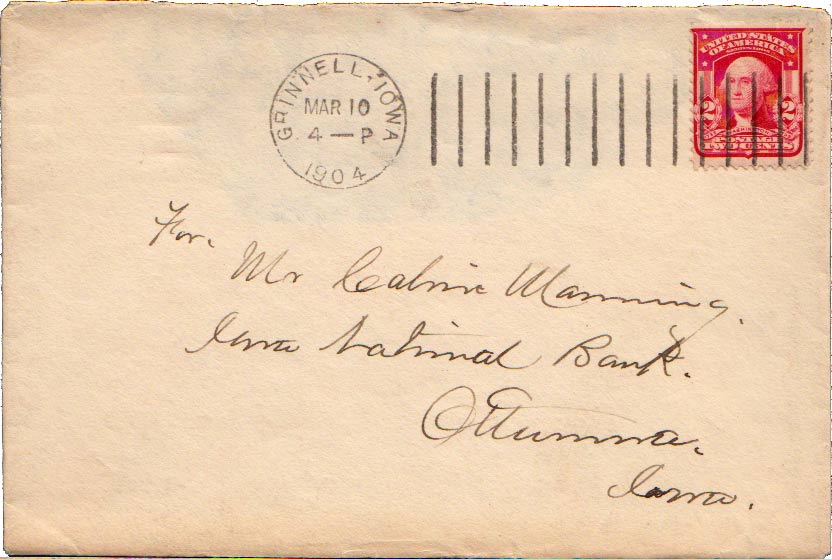 GRINNELL, IOWA
MAR 10
4 — P
1904
UNITED STATES
OF AMERICA
2 2
POSTAGE
TWO CENTS
For.
Mr Calvin Manning.
Iowa National Bank.
Ottumwa.
Iowa.